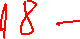 18 -